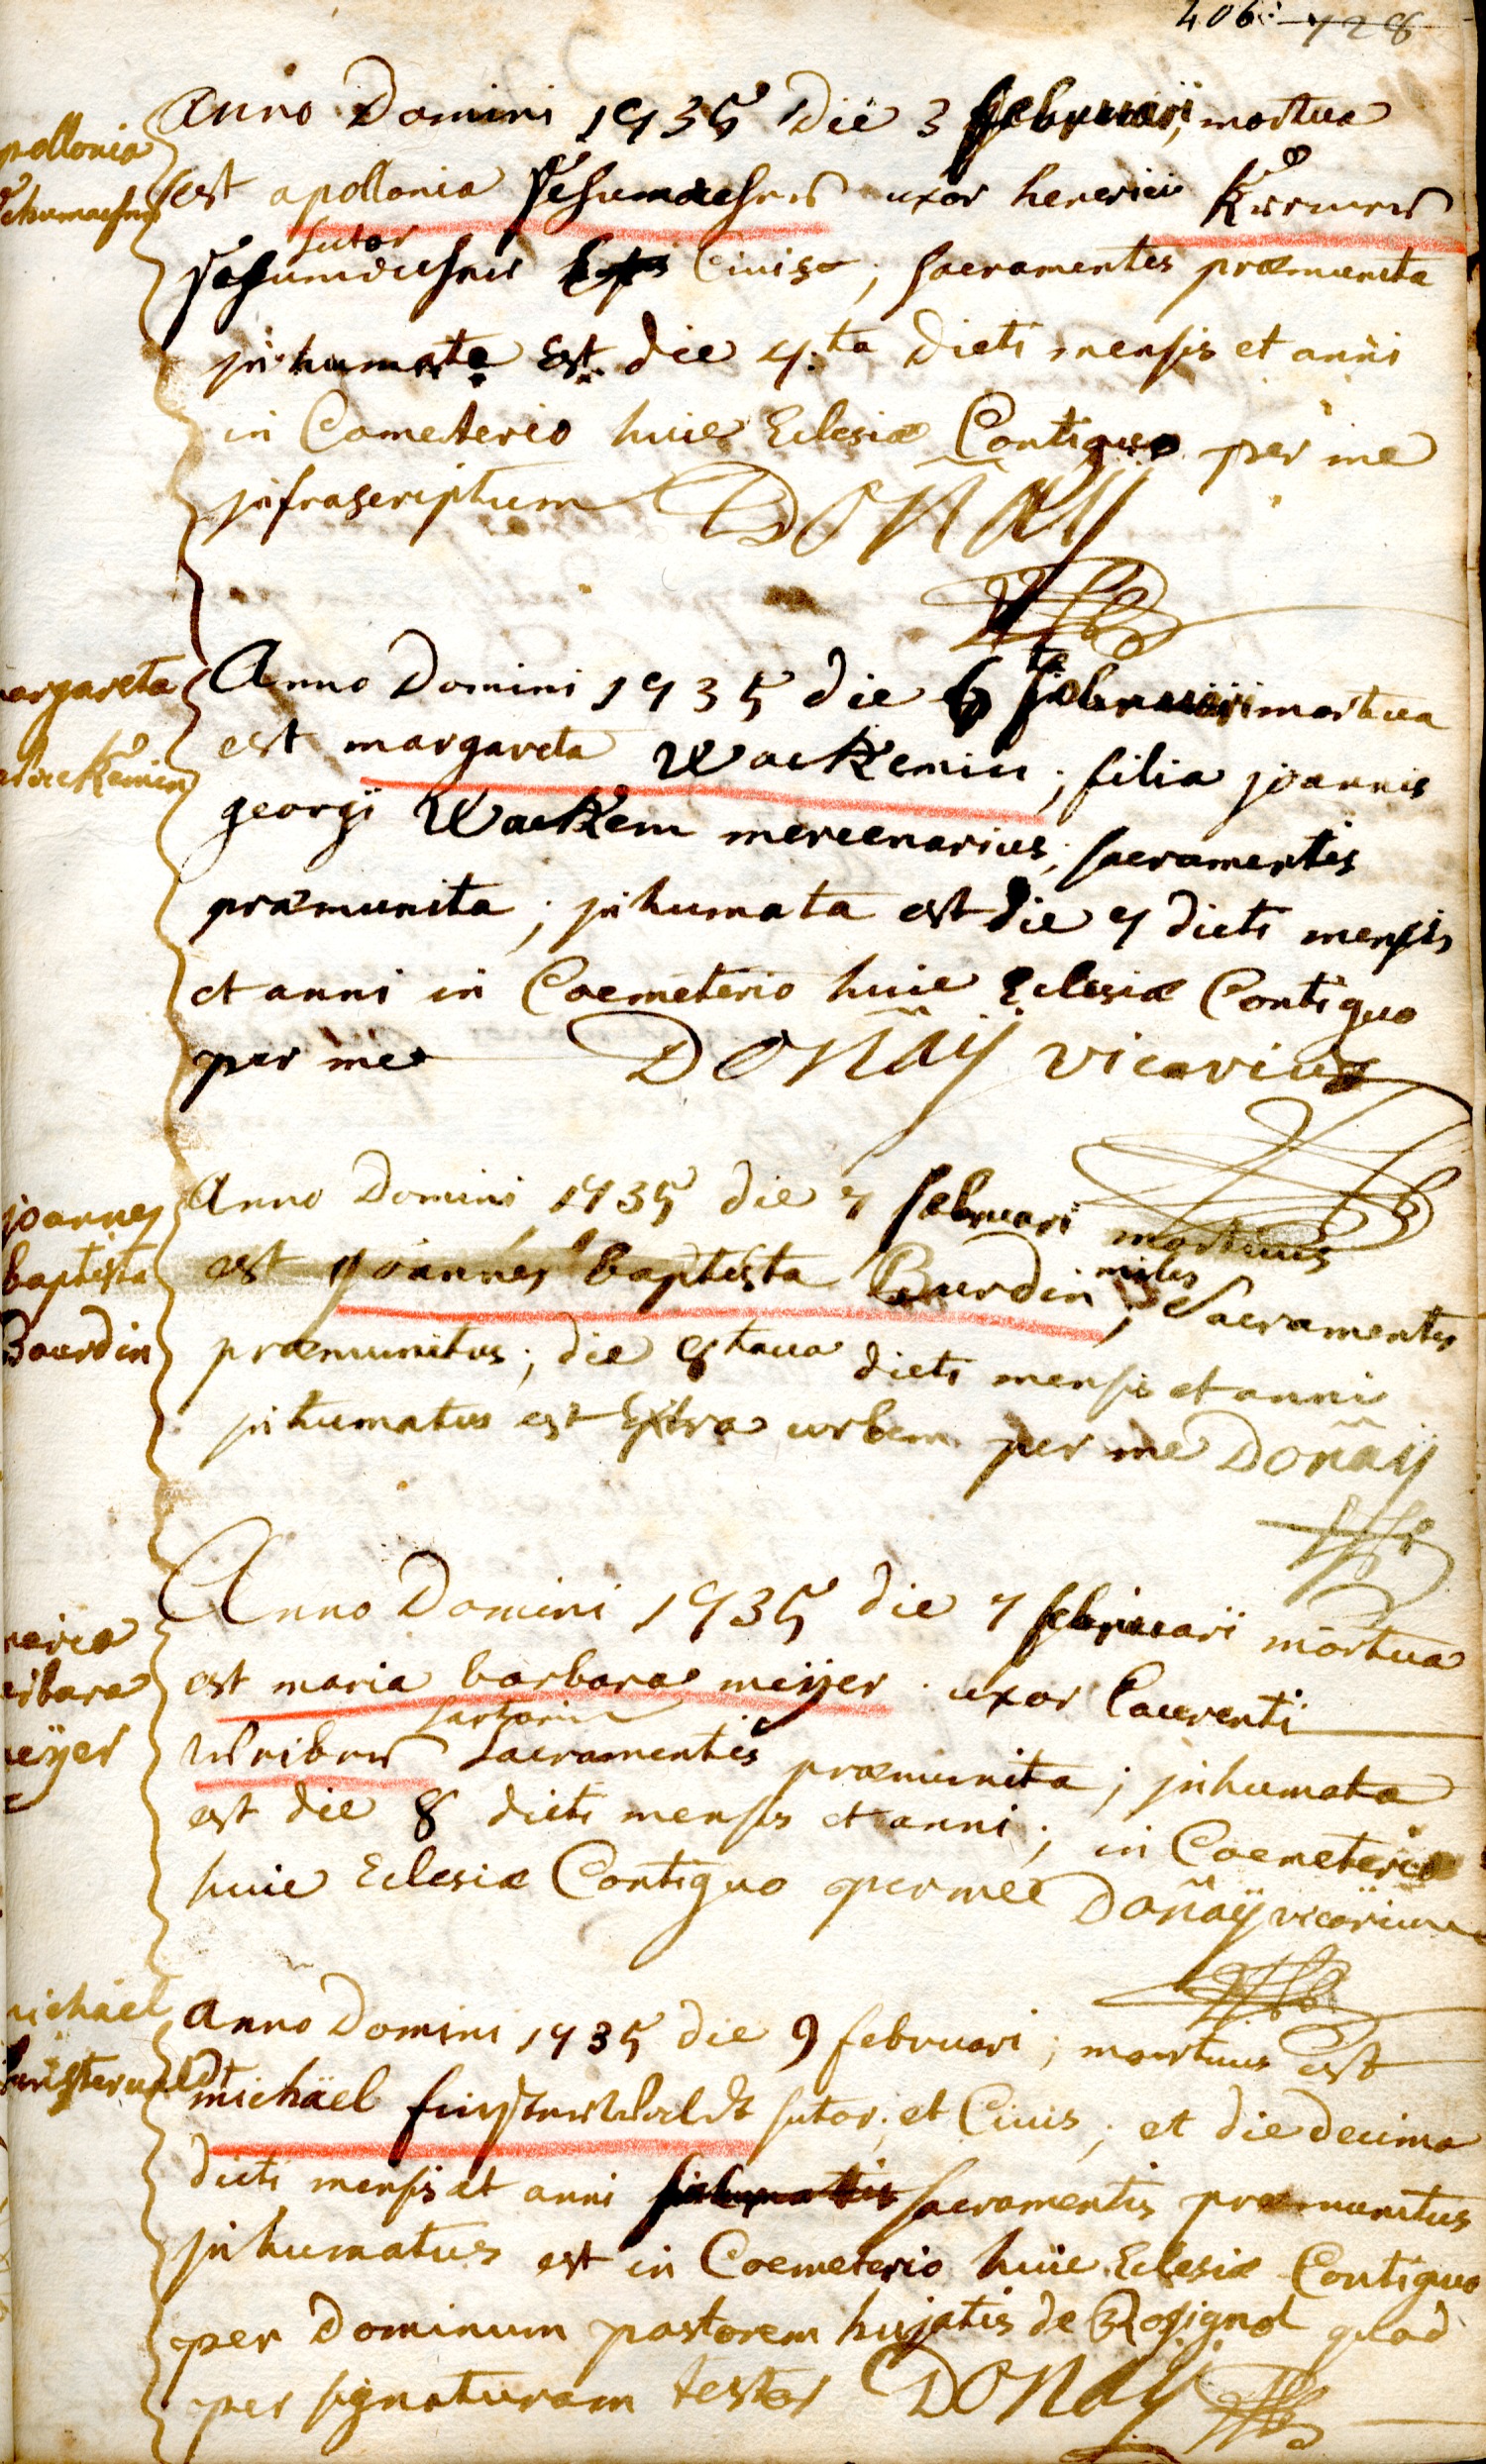 406: 728
Anno Domini 1735 die 3 februarii, mortua
pollonia
est apollonia Schumachers uxor henerici
Schumachers
sutor
Schumachers civis, sacramentis præmunita
inhumata est die 4:ta dicti mensis et anni
in Cometerio huic Eclesiæ Contiguo per me
infrascriptum Doñaÿ
argareta
Anno Domini 1735 die 6 februarii mortua
est margareta Wackemin; filia joannis
ackemin
georgi Wackem mercenarius; sacramentis
præmunita; inhumata est die 7 dicti mensis
et anni in Coemeterio huic Eclesiæ Contiguo
per me Doñaÿ vicarius
joannes
baptista
Bourdin
Anno Domini 1735 die 7 februari mortuus
est joannes baptista Burdin miles, Sacramentis
præmunitus; die 8tava dicti mensis et anni
inhumatus est Extra urbem per me Doñaÿ
maria
arbara
eÿer
Anno Domini 1735 die 7 februarii mortua
est maria barbara meÿer uxor Laurenti
sartoris
Weiber Sacramentis præmunita; inhumata
est die 8 dicti mensis et anni; in Coemeterio
huic Eclesiæ Contiguo per me Doñaÿ vicarium
ichäel
Anno Domini 1735 die 9 februari; mortuus est
michäel finsterwaldt sutor; et Civis; et die decima
dicti mensis et anni sacramentis præmunitus
inhumatus est in Coemeterio huic Eclesiæ Contiguo
per Dominum pastorem hujatis de Rosignol quod
per signaturam testor Donaÿ